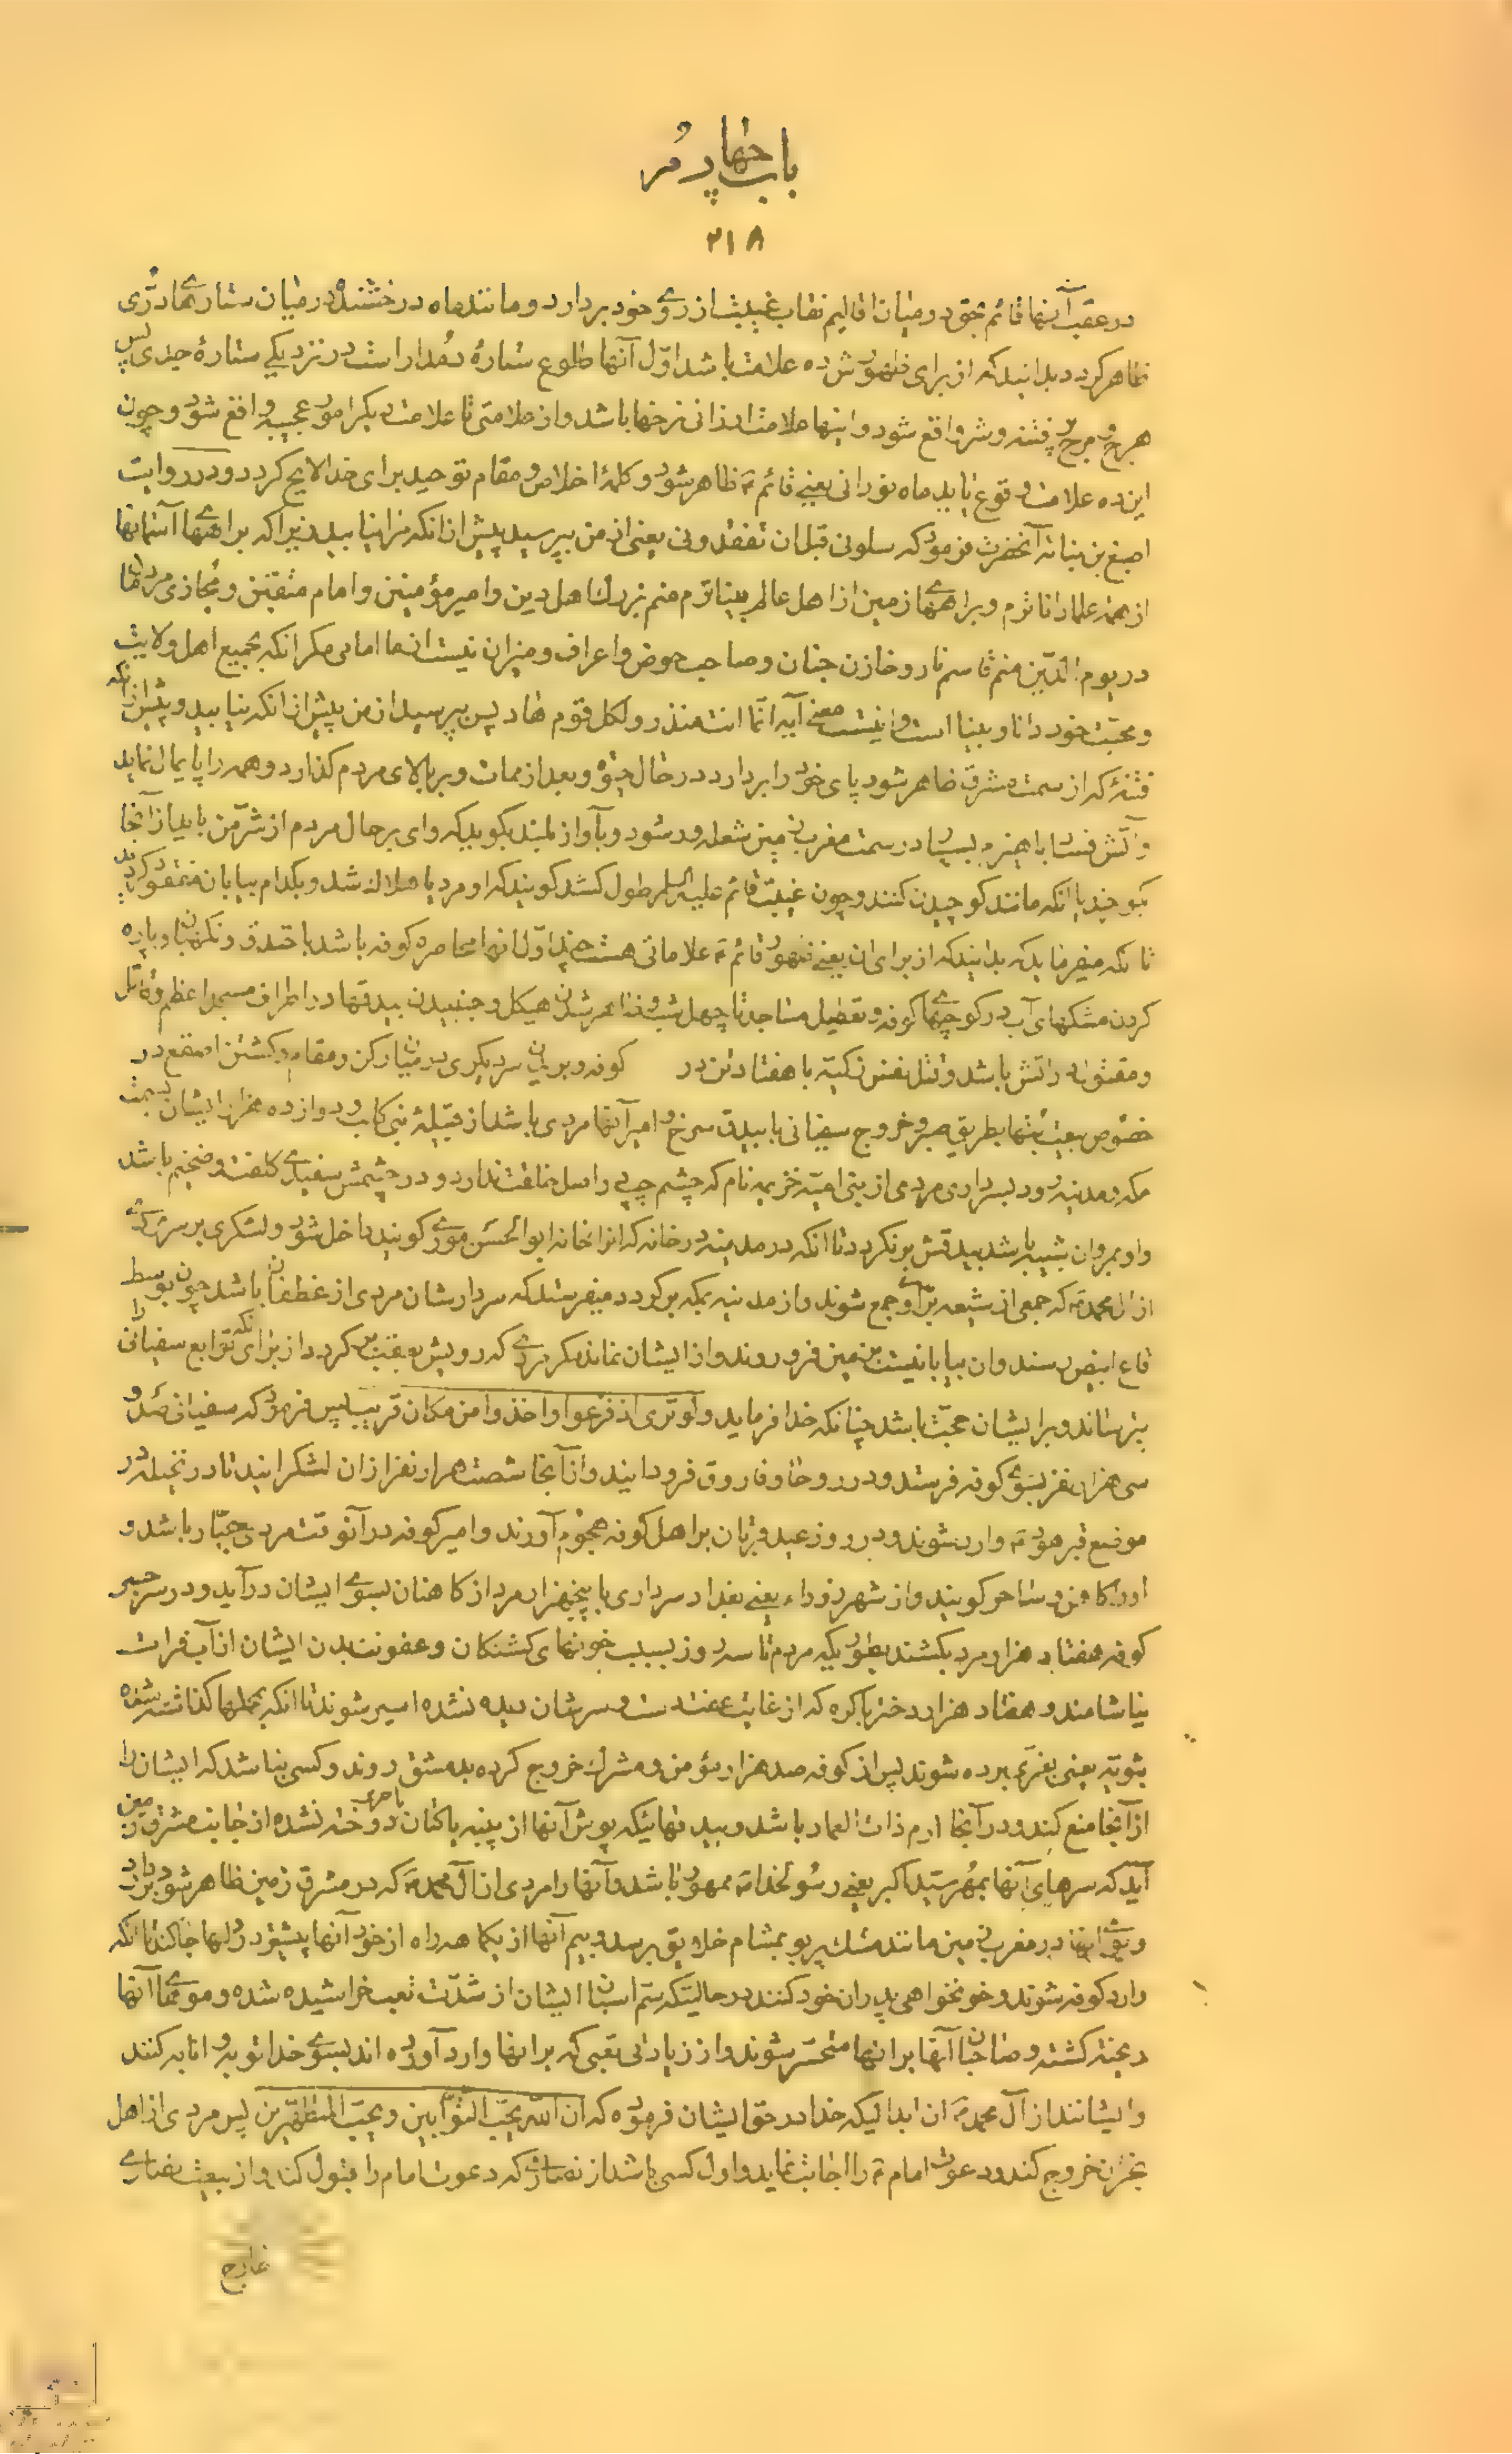 باب چهارم
۲۱۸
در عقب آنها قائم بحق در میان اقالیم نقاب غیبت از روی خود بردارد و مانند ماه درخشنده در میان ستارهای درّی
ظاهر گردد بدانید که از برای ظهورش ده علامت باشد اوّل آنها طلوع ستارهٔ دمدار است در نزدیکی ستارهٔ جدی پس
هرج و مرج و فتنه و شر واقع شود و اینها علامت ارزانی نرخها باشد و از علامتی تا علامت دیگر امور عجیبه واقع شود و چون
این ده علامت وقوع یابد ماه نورانی یعنی قائم ع ظاهر شود و کلمهٔ اخلاص و مقام توحید برای خدا لایح گردد و در روایت
اصبغ بن نباته آنحضرت فرمود که سلونی قبل ان تفقدونی یعنی از من بپرسید پیش از انکه مرا نیابید زیرا که براههای آسمانها
از همه علما داناترم و براههای زمین از اهل عالم بیناترم منم بزرک اهل دین و امیر مؤمنین و امام متقین و مجازی مردمان
در یوم الدّین منم قاسم نار و خازن جنان و صاحب حوض و اعراف و میزان نیست از ما امامی مکر انکه بجمیع اهل ولایت
و محبت خود دانا و بینا است و اینست معنی آیه انّما انت منذر و لکل قوم هاد پس بپرسید از من پیش از انکه نیابید و پیش از انکه
فتنهٔ که از سمت مشرق ظاهر شود پای خود را بردارد در حال حیوة و بعد از ممات و بر بالای مردم کذارد و همه را پایمال نماید
و آتش فتنه با هیزم بسیار در سمت مغرب زمین شعله‌ور شود و بآواز بلند بگوید که وای بر حال مردم از شرّ من باید از آنجا
بکوچید یا انکه مانند کوچیدن کنند و چون غیبت قائم علیه السلم طول کشد کویند که او مرد یا هلاک شد و بکدام بیابان مفقود کردید
تا انکه میفرماید که بدانید که از برای ان یعنی ظهور قائم ع علاماتی هست چند اوّل انها محاصره کوفه باشد با خندق و نکهبان و پاره
کردن مشکهای آب در کوچهای کوفه و تعطیل مساجد تا چهل شب و ظاهر شدن هیکل و جنبیدن بیدقها در اطراف مسجد اعظم و قاتل
و مقتول در اتش باشد و قتل نفس زکیّه با هفتاد تن در کوفه و بریدن سر دیکری در میان رکن و مقام و کشتن اصقع در
خصوص بیعت بتها بطریق صبر و خروج سفیانی با بیدق سرخ و امیر آنها مردی باشد از قبیلهٔ بنی کلب و دوازده هزار ایشان بسمت
مکه و مدینه رود بسرداری مردی از بنی امیّه خزیمه نام که چشم چپی را اصل خلقت ندارد و در چشمش سفیدی کلفت و ضخیم باشد
و او بمردان شبیه باشد بیدقش بر نکردد تا انکه در مدینه در خانه که انرا خانه ابوالحسن موی کویند داخل شود و لشکری بر سر مردی
از ال محمد ع که جمعی از شیعه بر او جمع شوند و از مدینه بمکه برکردد میفرستد که سردارشان مردی از غطفان باشد چون بوسط
قاع ابیض رسند و ان بیابانیست بزمین فرو روند و از ایشان نماند مکر مردی که رویش بعقب برکردد از برای انکه توابع سفیانی را
بترساند و بر ایشان حجّت باشد چنانکه خدا فرماید و لو تری اذ فزعوا و اخذوا من مکان قریب پس فرمود که سفیانی صد و
سی هزار نفر بسوی کوفه فرستد و در روحا و فاروق فرود ایند و از آنجا شصت هزار نفر از ان لشکر ایند تا در نخیله در
موضع قبر هود ع وارد شوند و در روز عید قربان بر اهل کوفه هجوم آورند و امیر کوفه در آنوقت مردی جبّار باشد و
او را کاهن و ساحر کویند و از شهر زوراء یعنی بغداد سرداری با پنجهزار مرد از کاهنان بسوی ایشان درآید و در سر جسر
کوفه هفتاد هزار مرد بکشند بطوریکه مردم تا سه روز بسبب خونهای کشتکان و عفونت بدن ایشان از آب فرات
نیاشامند و هفتاد هزار دختر باکره که از غایت عفت دست و سرشان دیده نشده اسیر شوند تا انکه بمحملها کذاشته شده
بثویّه یعنی بغری برده شوند پس از کوفه صد هزار مؤمن و مشرک خروج کرده بدمشق روند و کسی نباشد که ایشان را
از آنجا منع کند و در آنجا ارم ذات العماد باشد و بیدقهائیکه پوش آنها از پنبه یا کتان یا حریر دوخته نشده از جانب مشرق زمین
آید که سرهای آنها بمهر سیّد اکبر یعنی رسول خدا ص ممهور باشد و آنها را مردی از آل محمد ع که در مشرق زمین ظاهر شود بردارد
و بوی انها در مغرب زمین مانند مشک پر بو بمشام خلایق برسد و بیم آنها از یکماهه راه از خود آنها پیشتر در دلها جا کند تا انکه
وارد کوفه شوند و خونخواهی پدران خود کنند در حالیتکه سم اسبان ایشان از شدّت تعب خراشیده شده و مویهای آنها
ریخته کشته و صاحبان آنها بر انها متحسّر شوند و از زیادتی تعبی که بر انها وارد آورده اند بسوی خدا توبه و انابه کنند
و ایشانند از آل محمد ع ان ابدالیکه خدا در حق ایشان فرموده که ان اللّه یحبّ التوّابین و یحبّ المتطهّرین پس مردی از اهل
نجران خروج کند و دعوت امام ع را اجابت نماید و اول کسی باشد از نصاری که دعوت امام را قبول کند و از بیعت نصاری
خارج